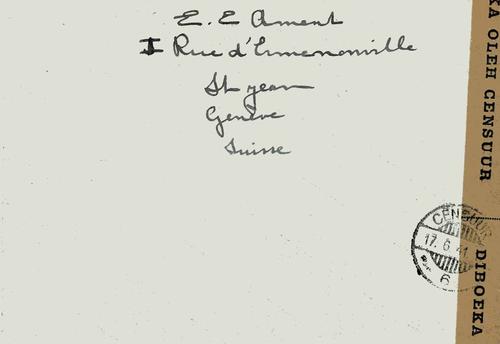 E. E Ament
I Rue d'Ermenonville
St Jean
Genève
Suisse
KA OLEH CENSUUR
DIBOEKA
CENSUUR
17. 6 41
6